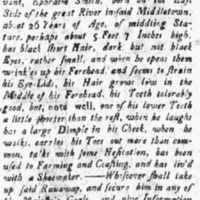 vant, Ephraim Smith, born on the East
Side of the great River in said Middletown,
about 26 Years of Age, of middling Sta-
ture, perhaps about 5 Feet 7 Inches high,
has black short Hair, dark but not black
Eyes, rather small, and when he opens them
wrinkles up his Forehead, and seems to strain
his Eye-Lids, his Hair grows low in the
Middle of his Forehead, his Teeth tolerably
good, but, note well, one of his lower Teeth
a little shorter than the rest, when he laughs
has a large Dimple in his Cheek, when he
walks, carries his Toes out more than com-
mon, talks with some Hesitation, has been
used to Farming and Coasting, and has liv'd
with a Shoemaker. —Whosoever shall take
up said Runaway, and secure him in any of
his Majesty's Goals, and give Information